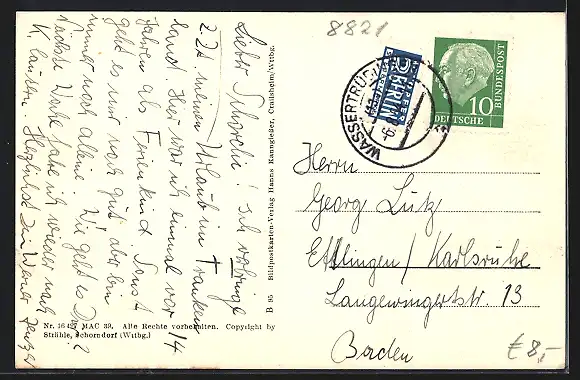 8821
Lieber Schorch! Ich verbringe
z. Zt. meinen Urlaub im Franken-
land. Hier war ich einmal vor 14
Jahren als Ferienkind. Sonst
geht es mir noch gut aber bin
immer noch alleine. Wie geht es Dir?
Nächste Woche fahre ich wieder nach
Klausen. Herzlichst Dein Werner
B 95 Bildpostkarten-Verlag Hanns Kanngießer, Crailsheim/Wttbg.
Nr. 16427 MAC 39. Alle Rechte vorbehalten. Copyright by
Strähle, Schorndorf (Wttbg.)
WASSERTRÜ
NOTOPFER
2 BERLIN
STEUERMARKE
10
DEUTSCHE
BUNDESPOST
Herrn
Georg Lutz
Ettlingen / Karlsruhe
Langewingertstr. 13
Baden
€ 8,-